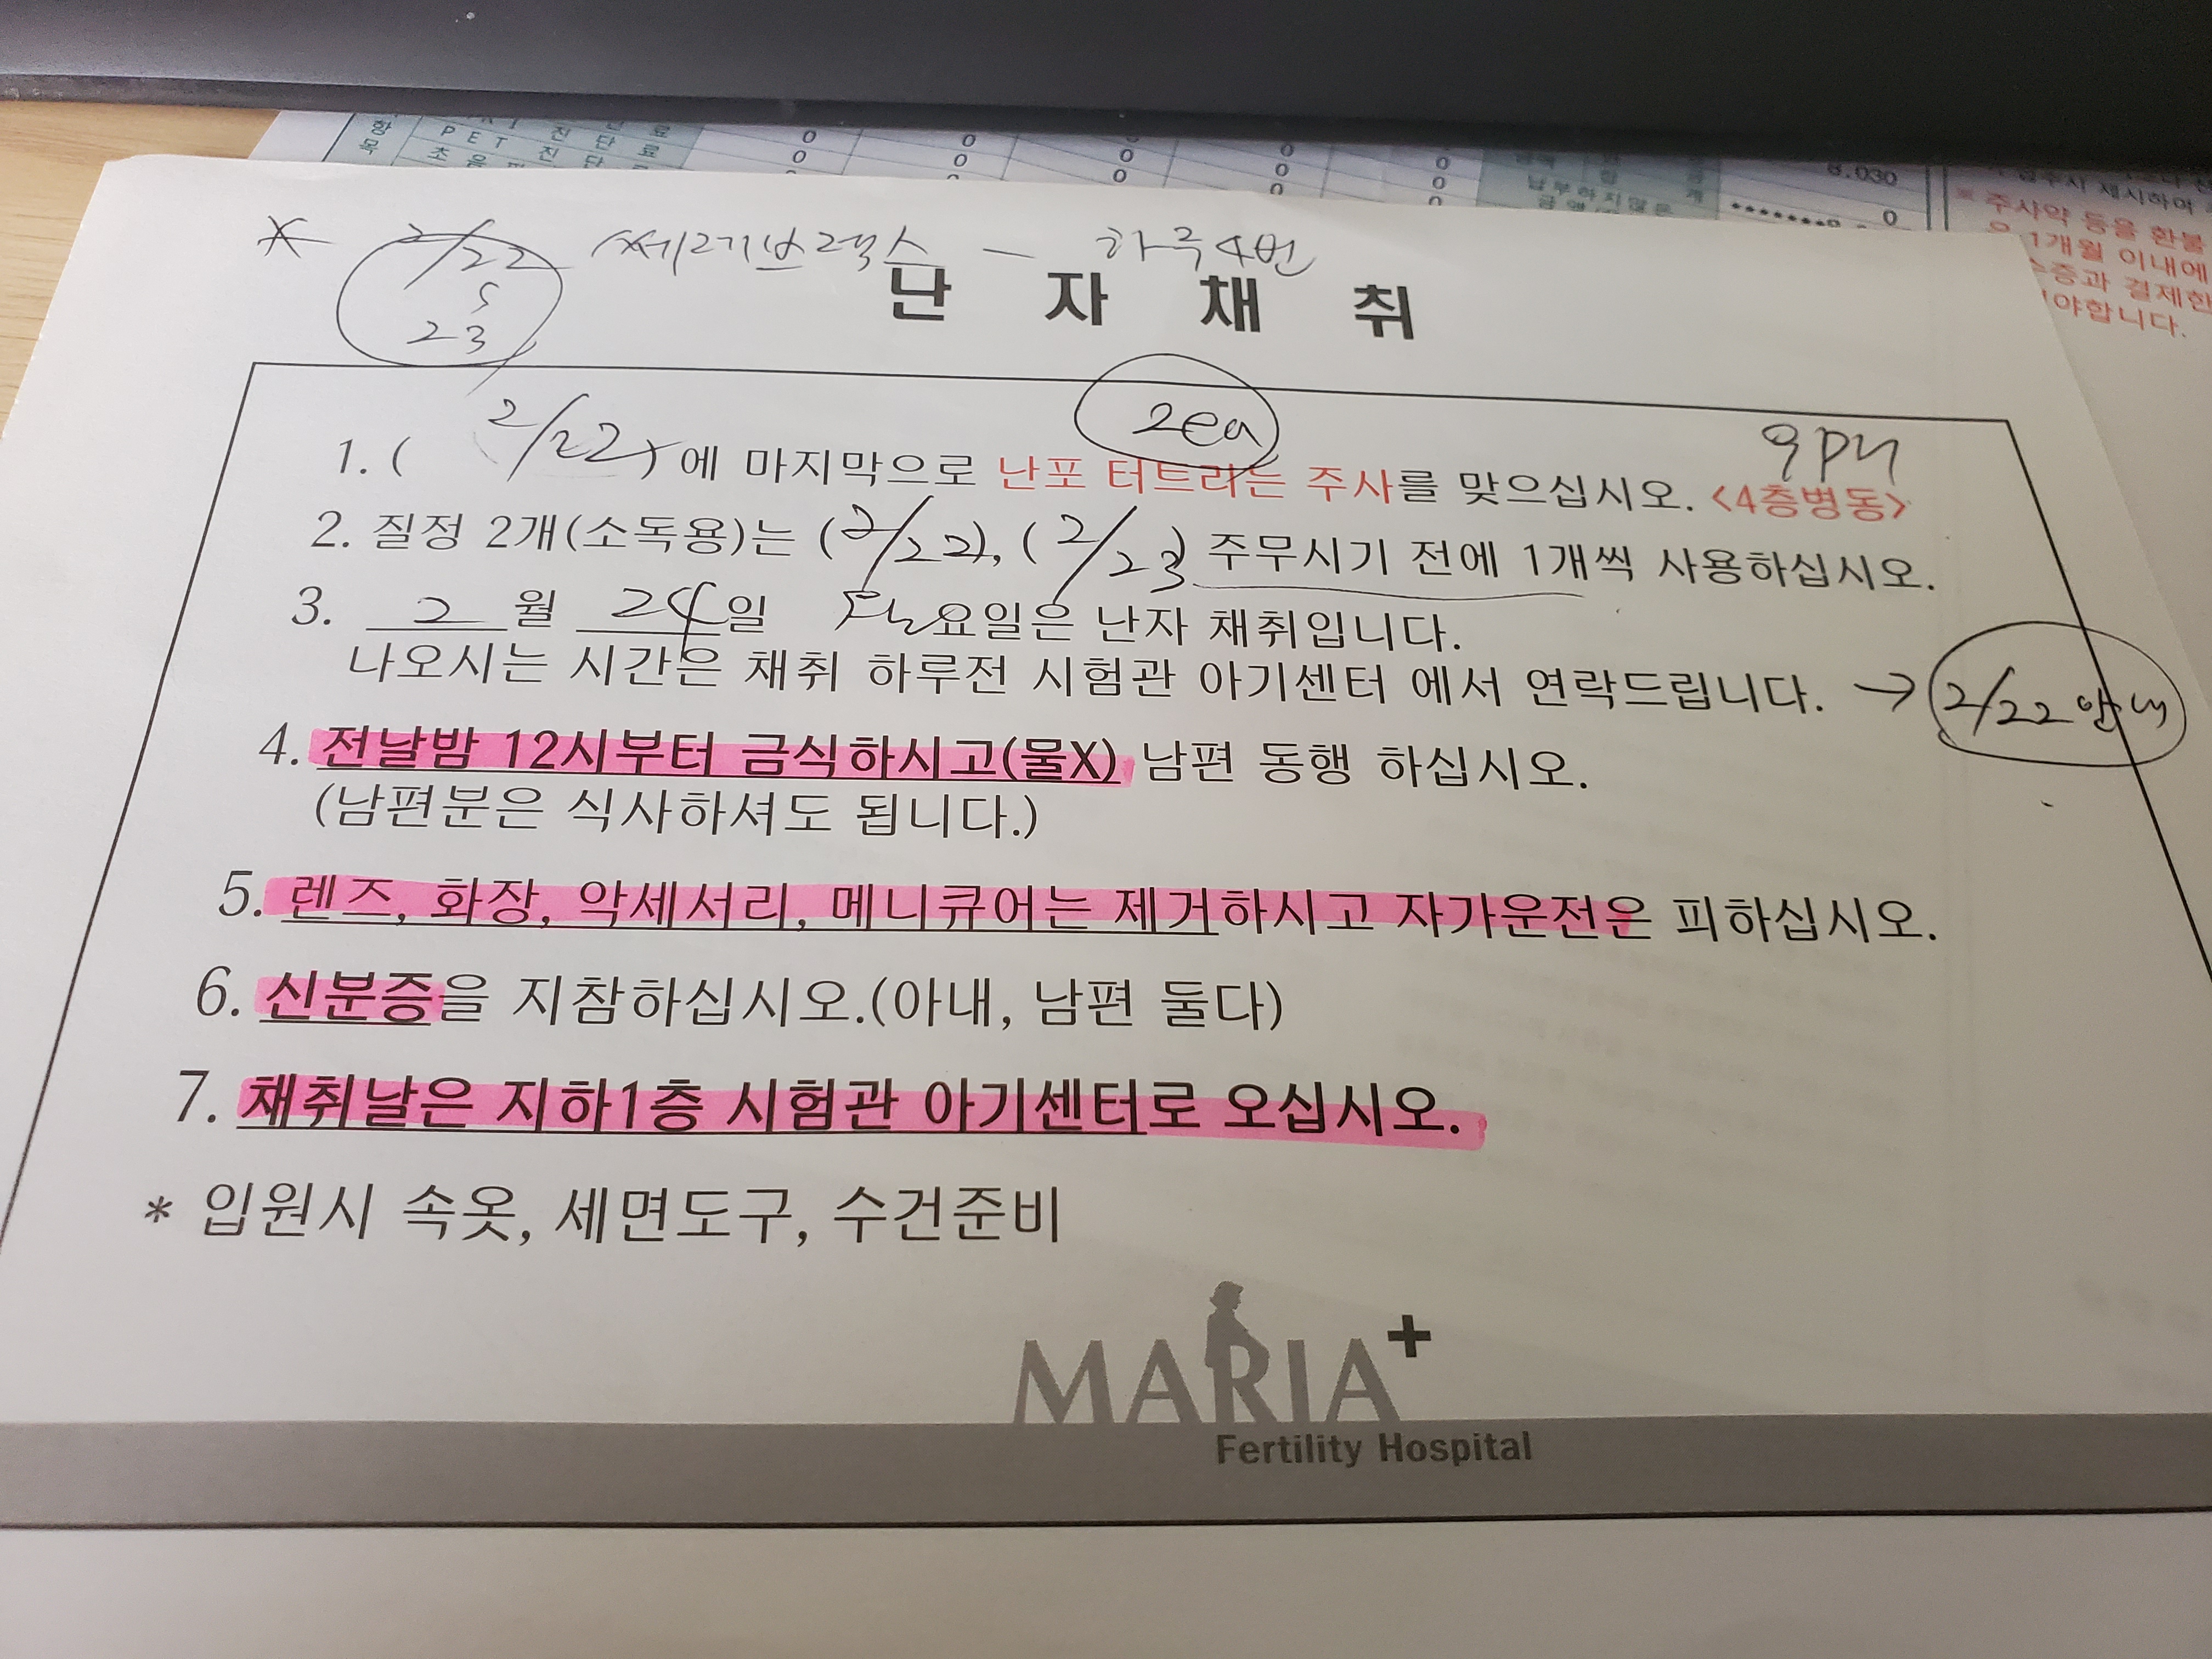 항
목
진 단 료
P E T 진 단 료
초 음 파 진 단 료
0 0 0 0 0
0 0 0 0 0
8.030
납부하지않은
금액
0
제시하여
※ 주사약 등을 환불
1개월 이내에
결제한
야합니다.
* 2/22 쎄레브렉스 - 하루 4번
S
23
난 자 채 취
2ea
9PM
1. ( 2/22 ) 에 마지막으로 난포 터트리는 주사를 맞으십시오. <4층병동>
2. 질정 2개(소독용)는 (2/22), (2/23) 주무시기 전에 1개씩 사용하십시오.
3. 2 월 24 일 요일은 난자 채취입니다.
나오시는 시간은 채취 하루전 시험관 아기센터 에서 연락드립니다. → 2/22 안내
4. 전날밤 12시부터 금식하시고(물X) 남편 동행 하십시오.
(남편분은 식사하셔도 됩니다.)
5. 렌즈, 화장, 악세서리, 메니큐어는 제거하시고 자가운전은 피하십시오.
6. 신분증을 지참하십시오.(아내, 남편 둘다)
7. 채취날은 지하1층 시험관 아기센터로 오십시오.
* 입원시 속옷, 세면도구, 수건준비
MARIA+
Fertility Hospital